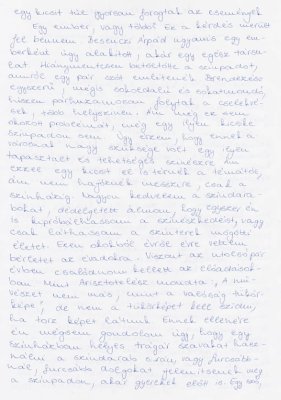 egy kicsit túl gyorsan forogtak az események.
Egy ember, vagy több? Ez a kérdés merült
fel bennem. Besenczi Árpád ugyanis egy em-
berként úgy alakított, akár egy egész társu-
lat. Hiánymentesen betöltötte a színpadot,
amiről egy pár szót említenék. Berendezése
egyszerű, mégis sokoldalú és sokatmondó,
hiszen párhuzamosan folytak a cselekvé-
sek, több helyszínen. Ám még ez sem
okozott problémát, még egy ilyen kicsike
színpadon sem. Úgy érzem, hogy ennek a
városnak nagy szüksége volt egy ilyen
tapasztalt és tehetséges színészre. Ám
ezzel egy kicsit el is térnék a témától,
ám nem hajóznék messzire, csak a
színházig. Nagyon kedvelem a színdara-
bokat, dédelgetett álmom, hogy egyszer én
is kipróbálhassam a színészkedést, vagy
csak láthassam a színterek mögötti
életet. Ezen okokból évről évre veszem
bérletet az évadokra. Viszont az utolsó pár
évben csalódnom kellett az előadások-
ban. Mint Arisztotelész mondta: „A mű-
vészet nem más, mint a valóság tükör-
képe", de nem a tükörképet kell törni,
ha torz képet látunk. Ennek ellenére
én mégsem gondolom úgy, hogy egy
színházban helyes trágár szavakat hasz-
nálni a színdarab során, vagy furcsább-
nál, furcsább dolgokat jelenítsenek meg
a színpadon, akár gyerekek előtt is. Egy szó,